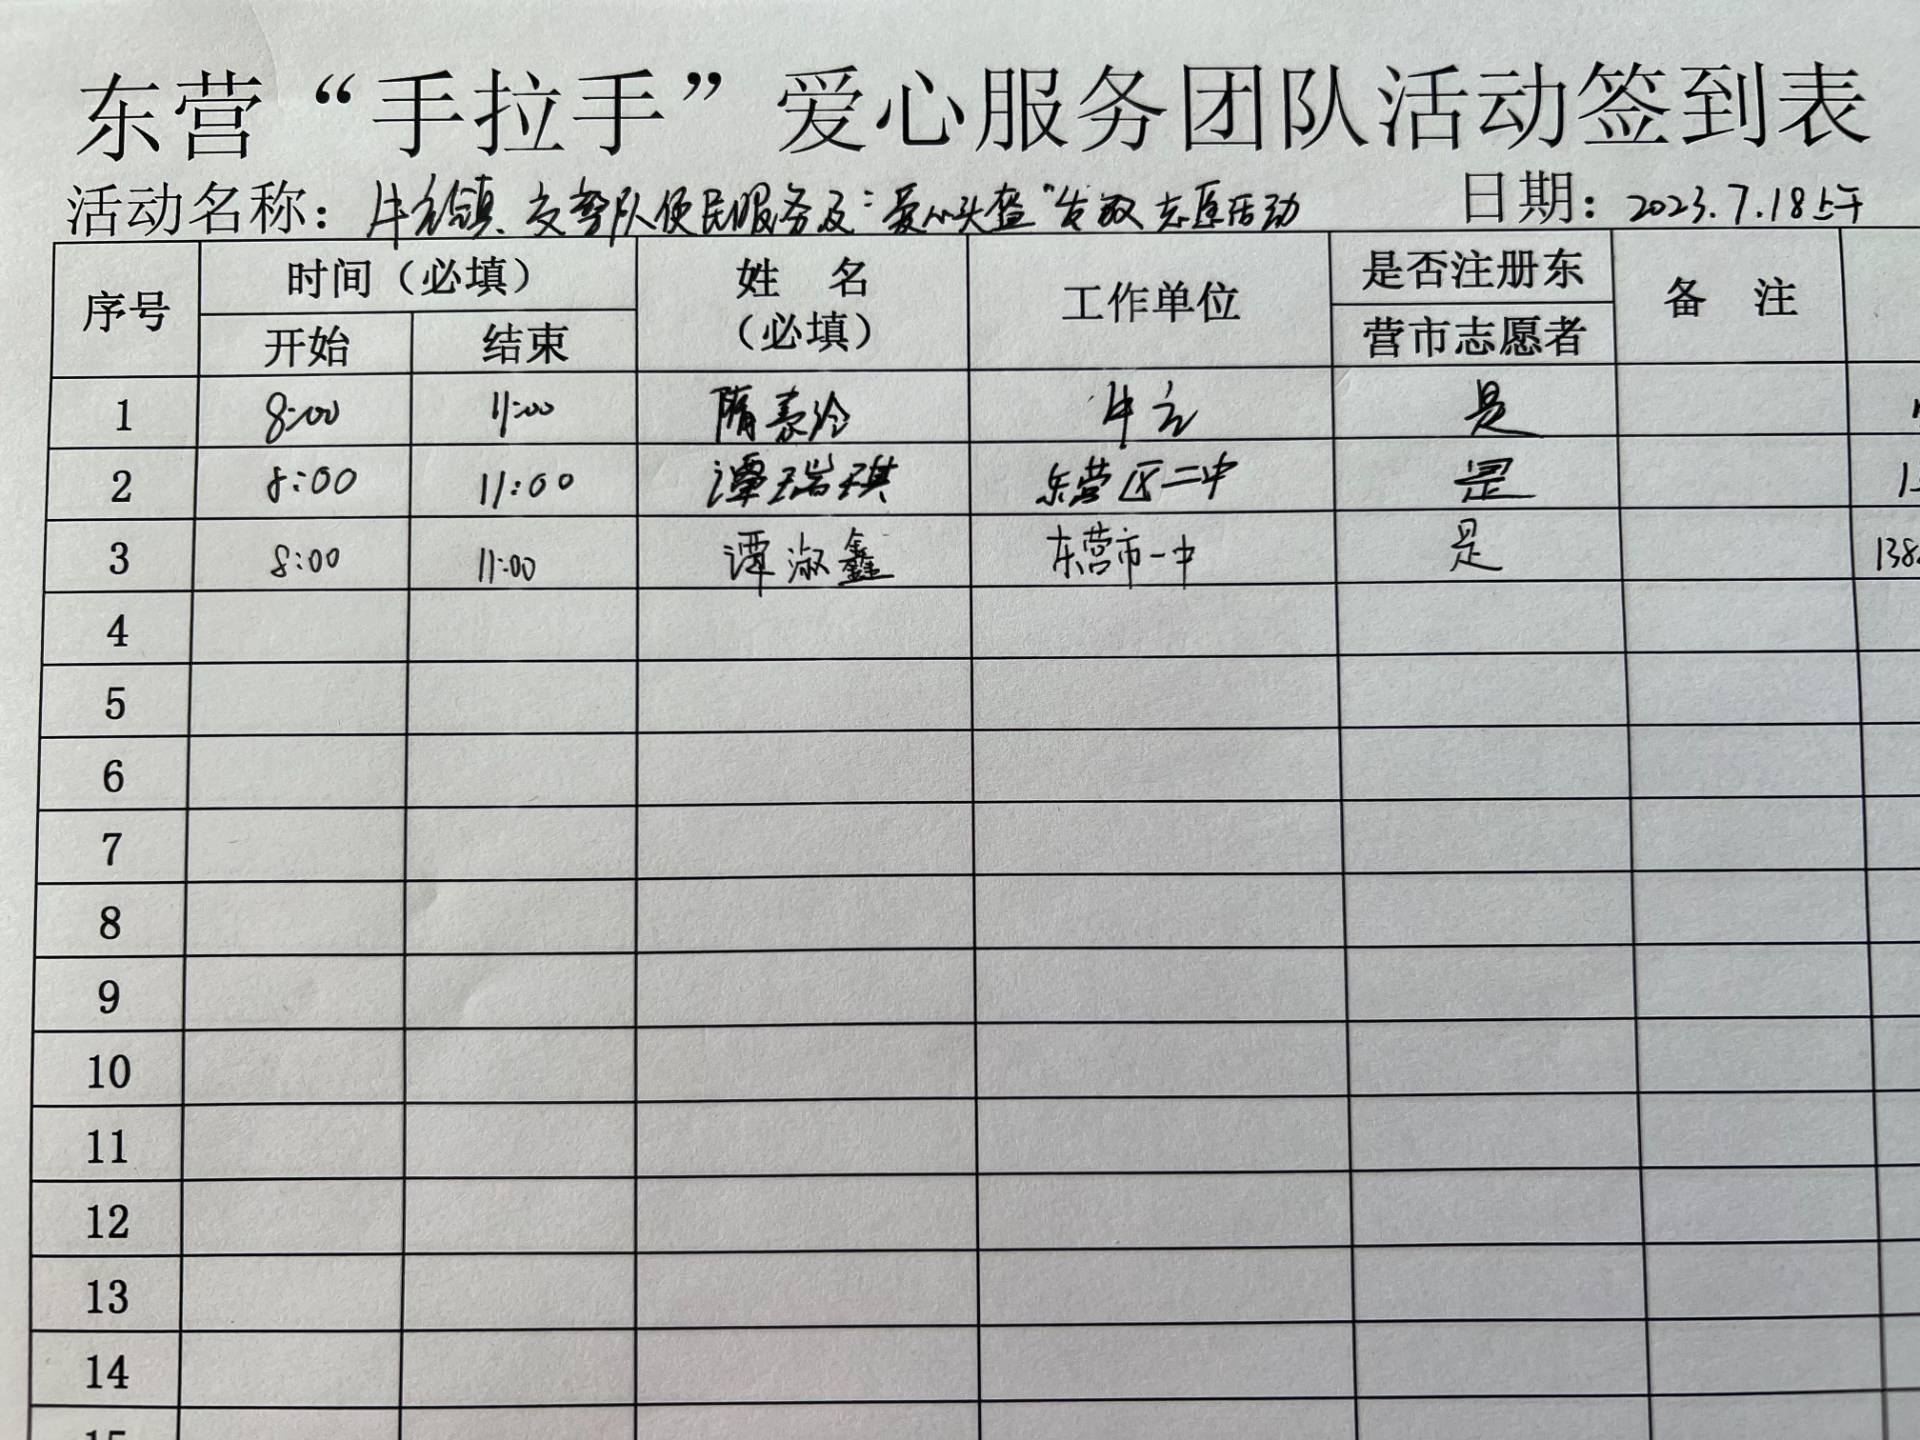 东营“手拉手”爱心服务团队活动签到表
活动名称：牛庄镇交警队便民服务及“爱心头盔”发放志愿活动 日期：2023.7.18上午
序号 时间（必填） 姓 名（必填） 工作单位 是否注册东营市志愿者 备 注
开始 结束
1 8:00 11:00 隋 玲 牛庄 是
2 8:00 11:00 谭瑞琪 东营区二中 是
3 8:00 11:00 谭淑鑫 东营市一中 是 138
4
5
6
7
8
9
10
11
12
13
14
15